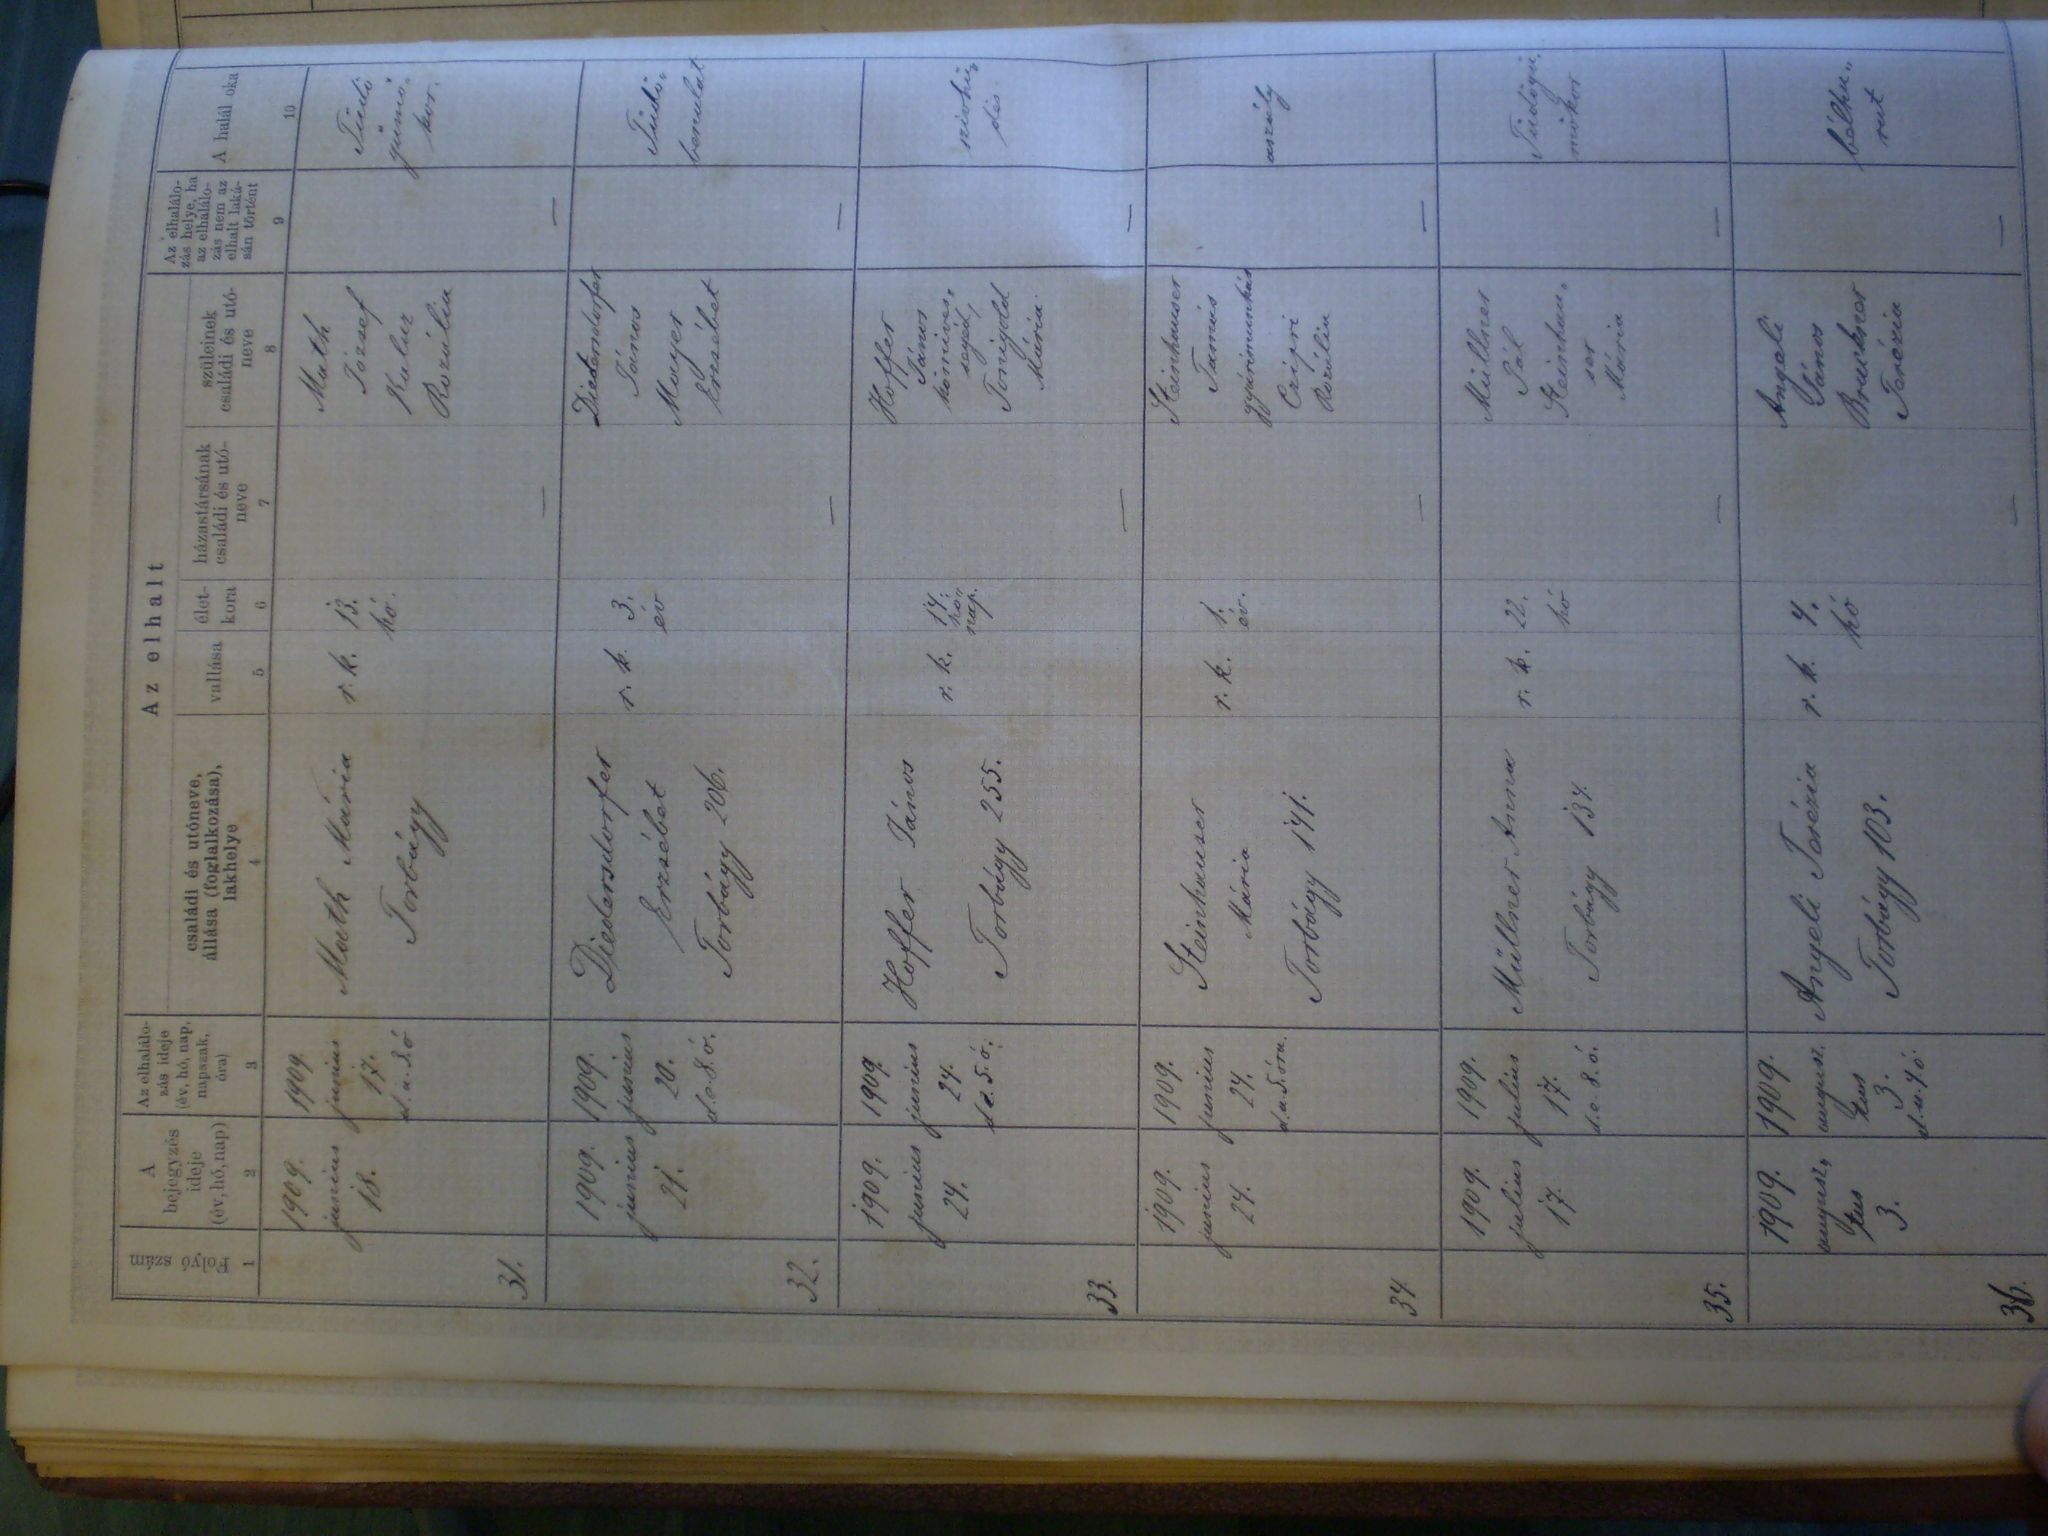 Az elhalt
Folyó szám
A bejegyzés ideje (év, hó, nap)
Az elhalálo-
zás ideje
(év, hó, nap,
napszak,
óra)
családi és utóneve,
állása (foglalkozása),
lakhelye
vallása
élet-
kora
házastársának
családi és utó-
neve
szüleinek
családi és utó-
neve
Az elhalálo-
zás helye, ha
az elhalálo-
zás nem az
elhalt laká-
sán történt
A halál oka
1 2 3 4 5 6 7 8 9 10
31.
1909.
junius
18.
1909.
junius
17.
d.u. 3. ó
Muth Mária
Torbágy
r. k.
13.
hó.
—
Muth
József
Kulur
Rozália
—
Tüdő
gümő-
kor.
32.
1909.
junius
21.
1909.
junius
20.
d.e. 8. ó.
Diedersdorfer
Erzsébet
Torbágy 206.
r. k.
3.
év
—
Diedersdorfer
János
Mayer
Erzsébet
—
Tüdő„
benulat
33.
1909.
junius
24.
1909
junius
24.
d.e. 5. ó.
Hoffer János
Torbágy 255.
r. k.
14.
hó„
nap.
—
Hoffer
János
kőmives„
segéd,
Tonigold
Mária
—
szivhű„
dés
34
1909.
junius
24.
1909.
junius
24.
d.u. 5. óra.
Steinhauser
Mária
Torbágy 141.
r. k.
1.
év.
—
Steinhauser
Tamás
gyárimunkás
Czipri
Rozália
—
aszály
35.
1909.
julius
17.
1909.
julius
17.
d.e. 8. ó.
Müllner Anna
Torbágy 134.
r. k.
22.
hó
—
Müllner
Pál
Steinhau„
ser
Mária
—
Tüdőgü„
mőkor
36.
1909.
augusz„
tus
3.
1909.
augusz.
tus
3.
d.u. 4. ó.
Angeli Terézia
Torbágy 103.
r. k.
4.
hó
—
Angeli
János
Bruckner
Terézia
—
bélhu„
rut